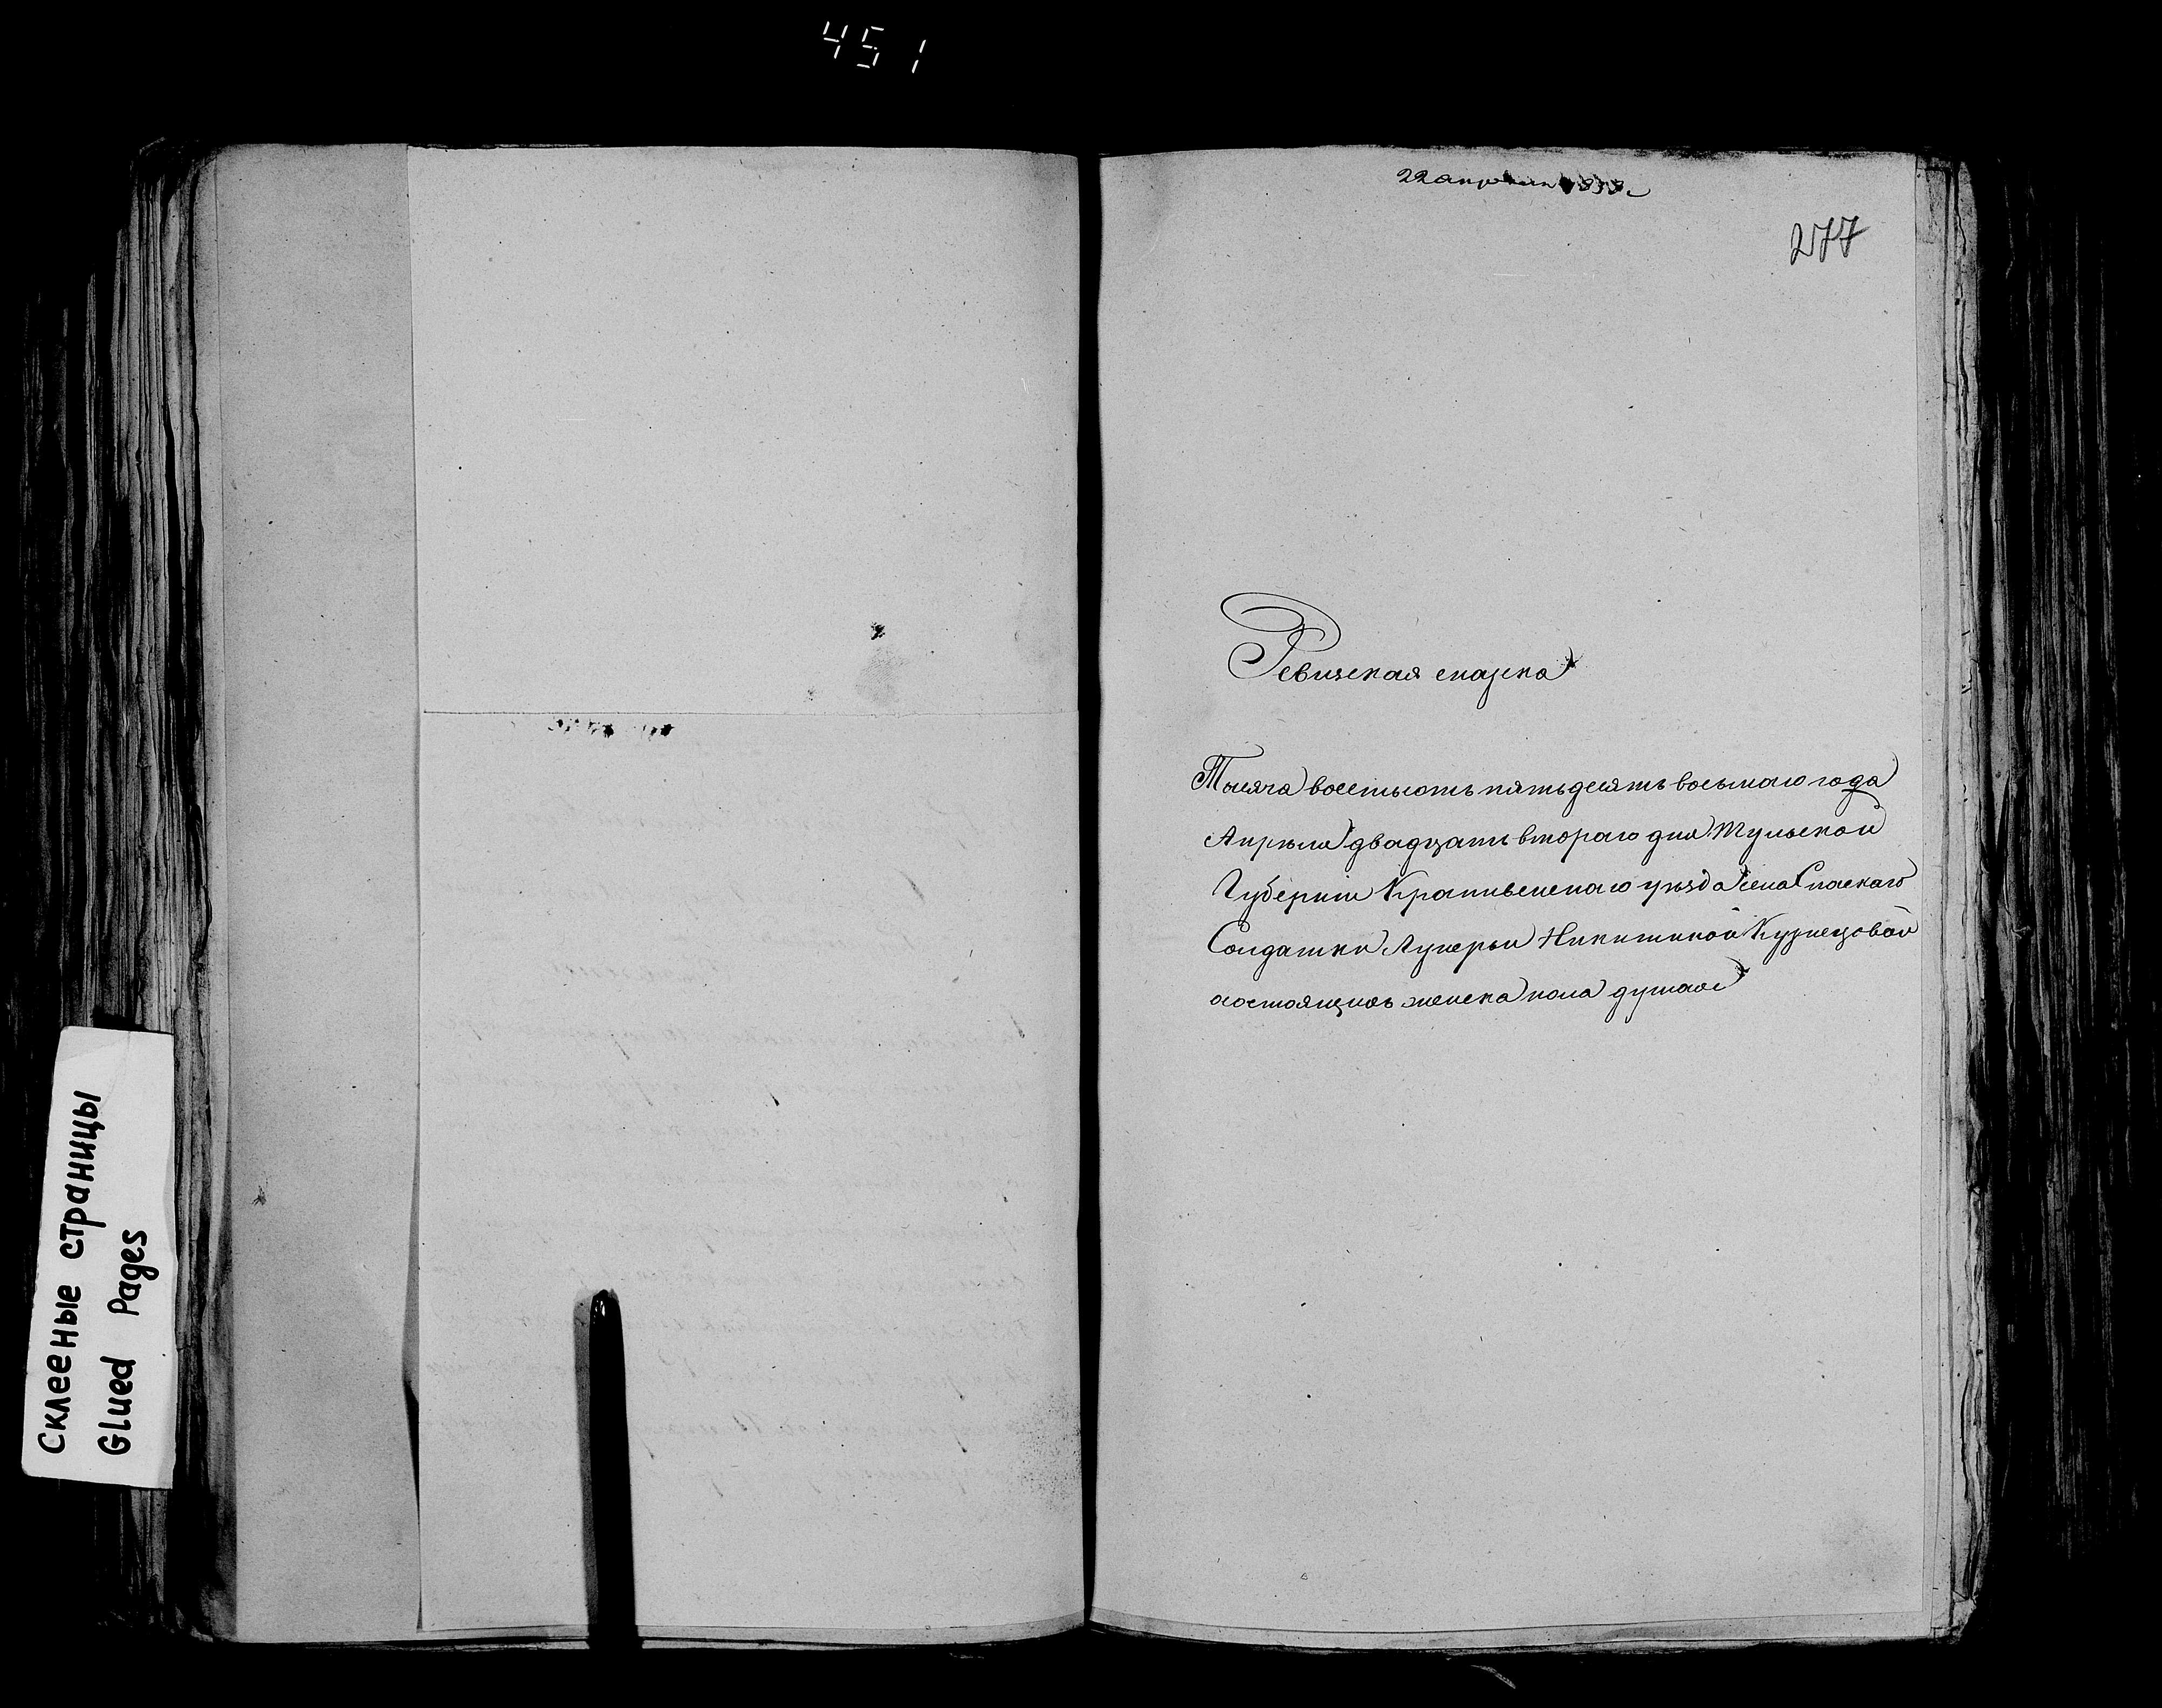 451
22 апреля 1858 г
277
Ревизская скаска
Тысяча восемьсотъ пятьдесятъ восьмаго года
Апрѣля двадцать втораго дня Тульской
Губерніи Крапивенскаго уѣзда села Спаскаго
Солдатки Лукерьи Никитиной Кузнецовой
остоящихъ женска пола душахъ
Склееные страницы
Glued Pages